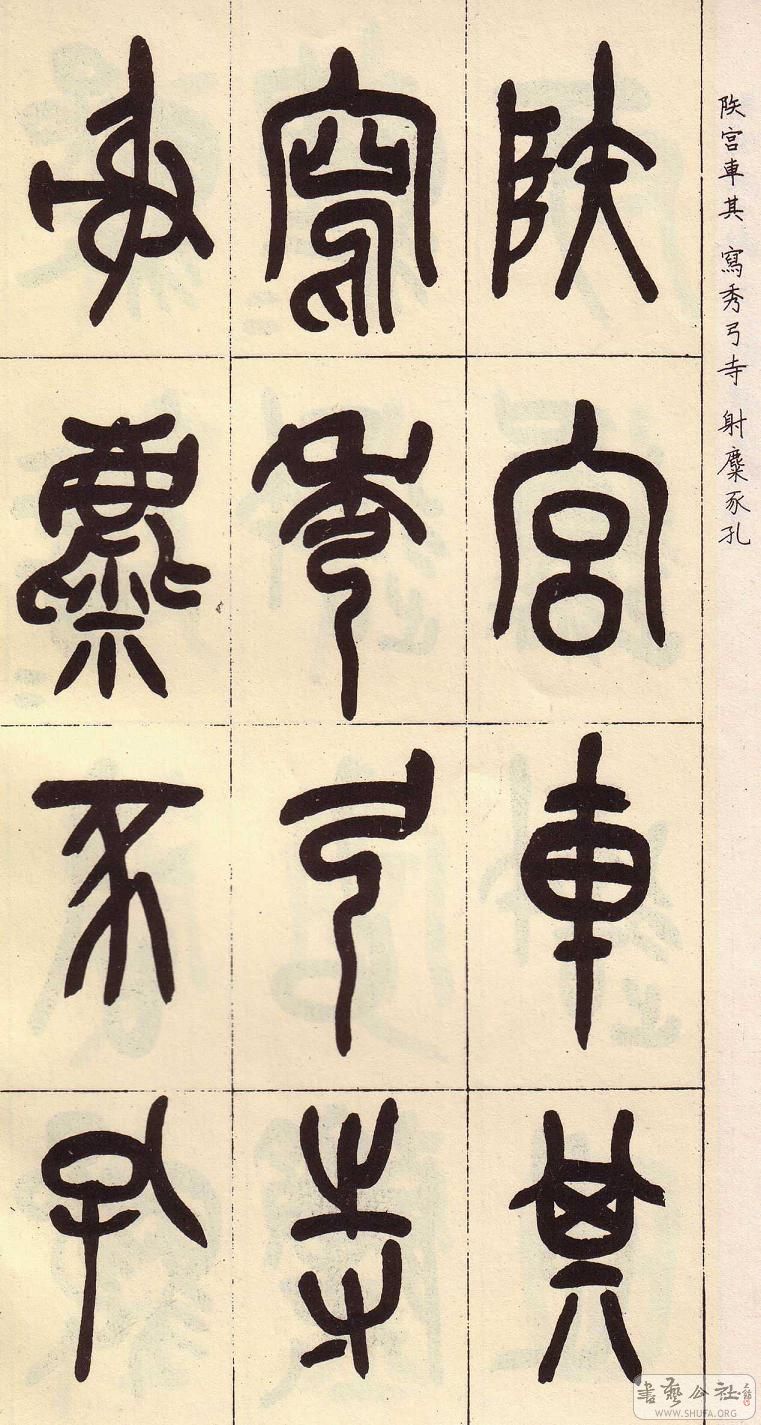 陕宫車其 寫秀弓寺 射麋豕孔
陕宫車其
寫秀弓寺
射麋豕孔
書藝公社
WWW.SHUFA.ORG